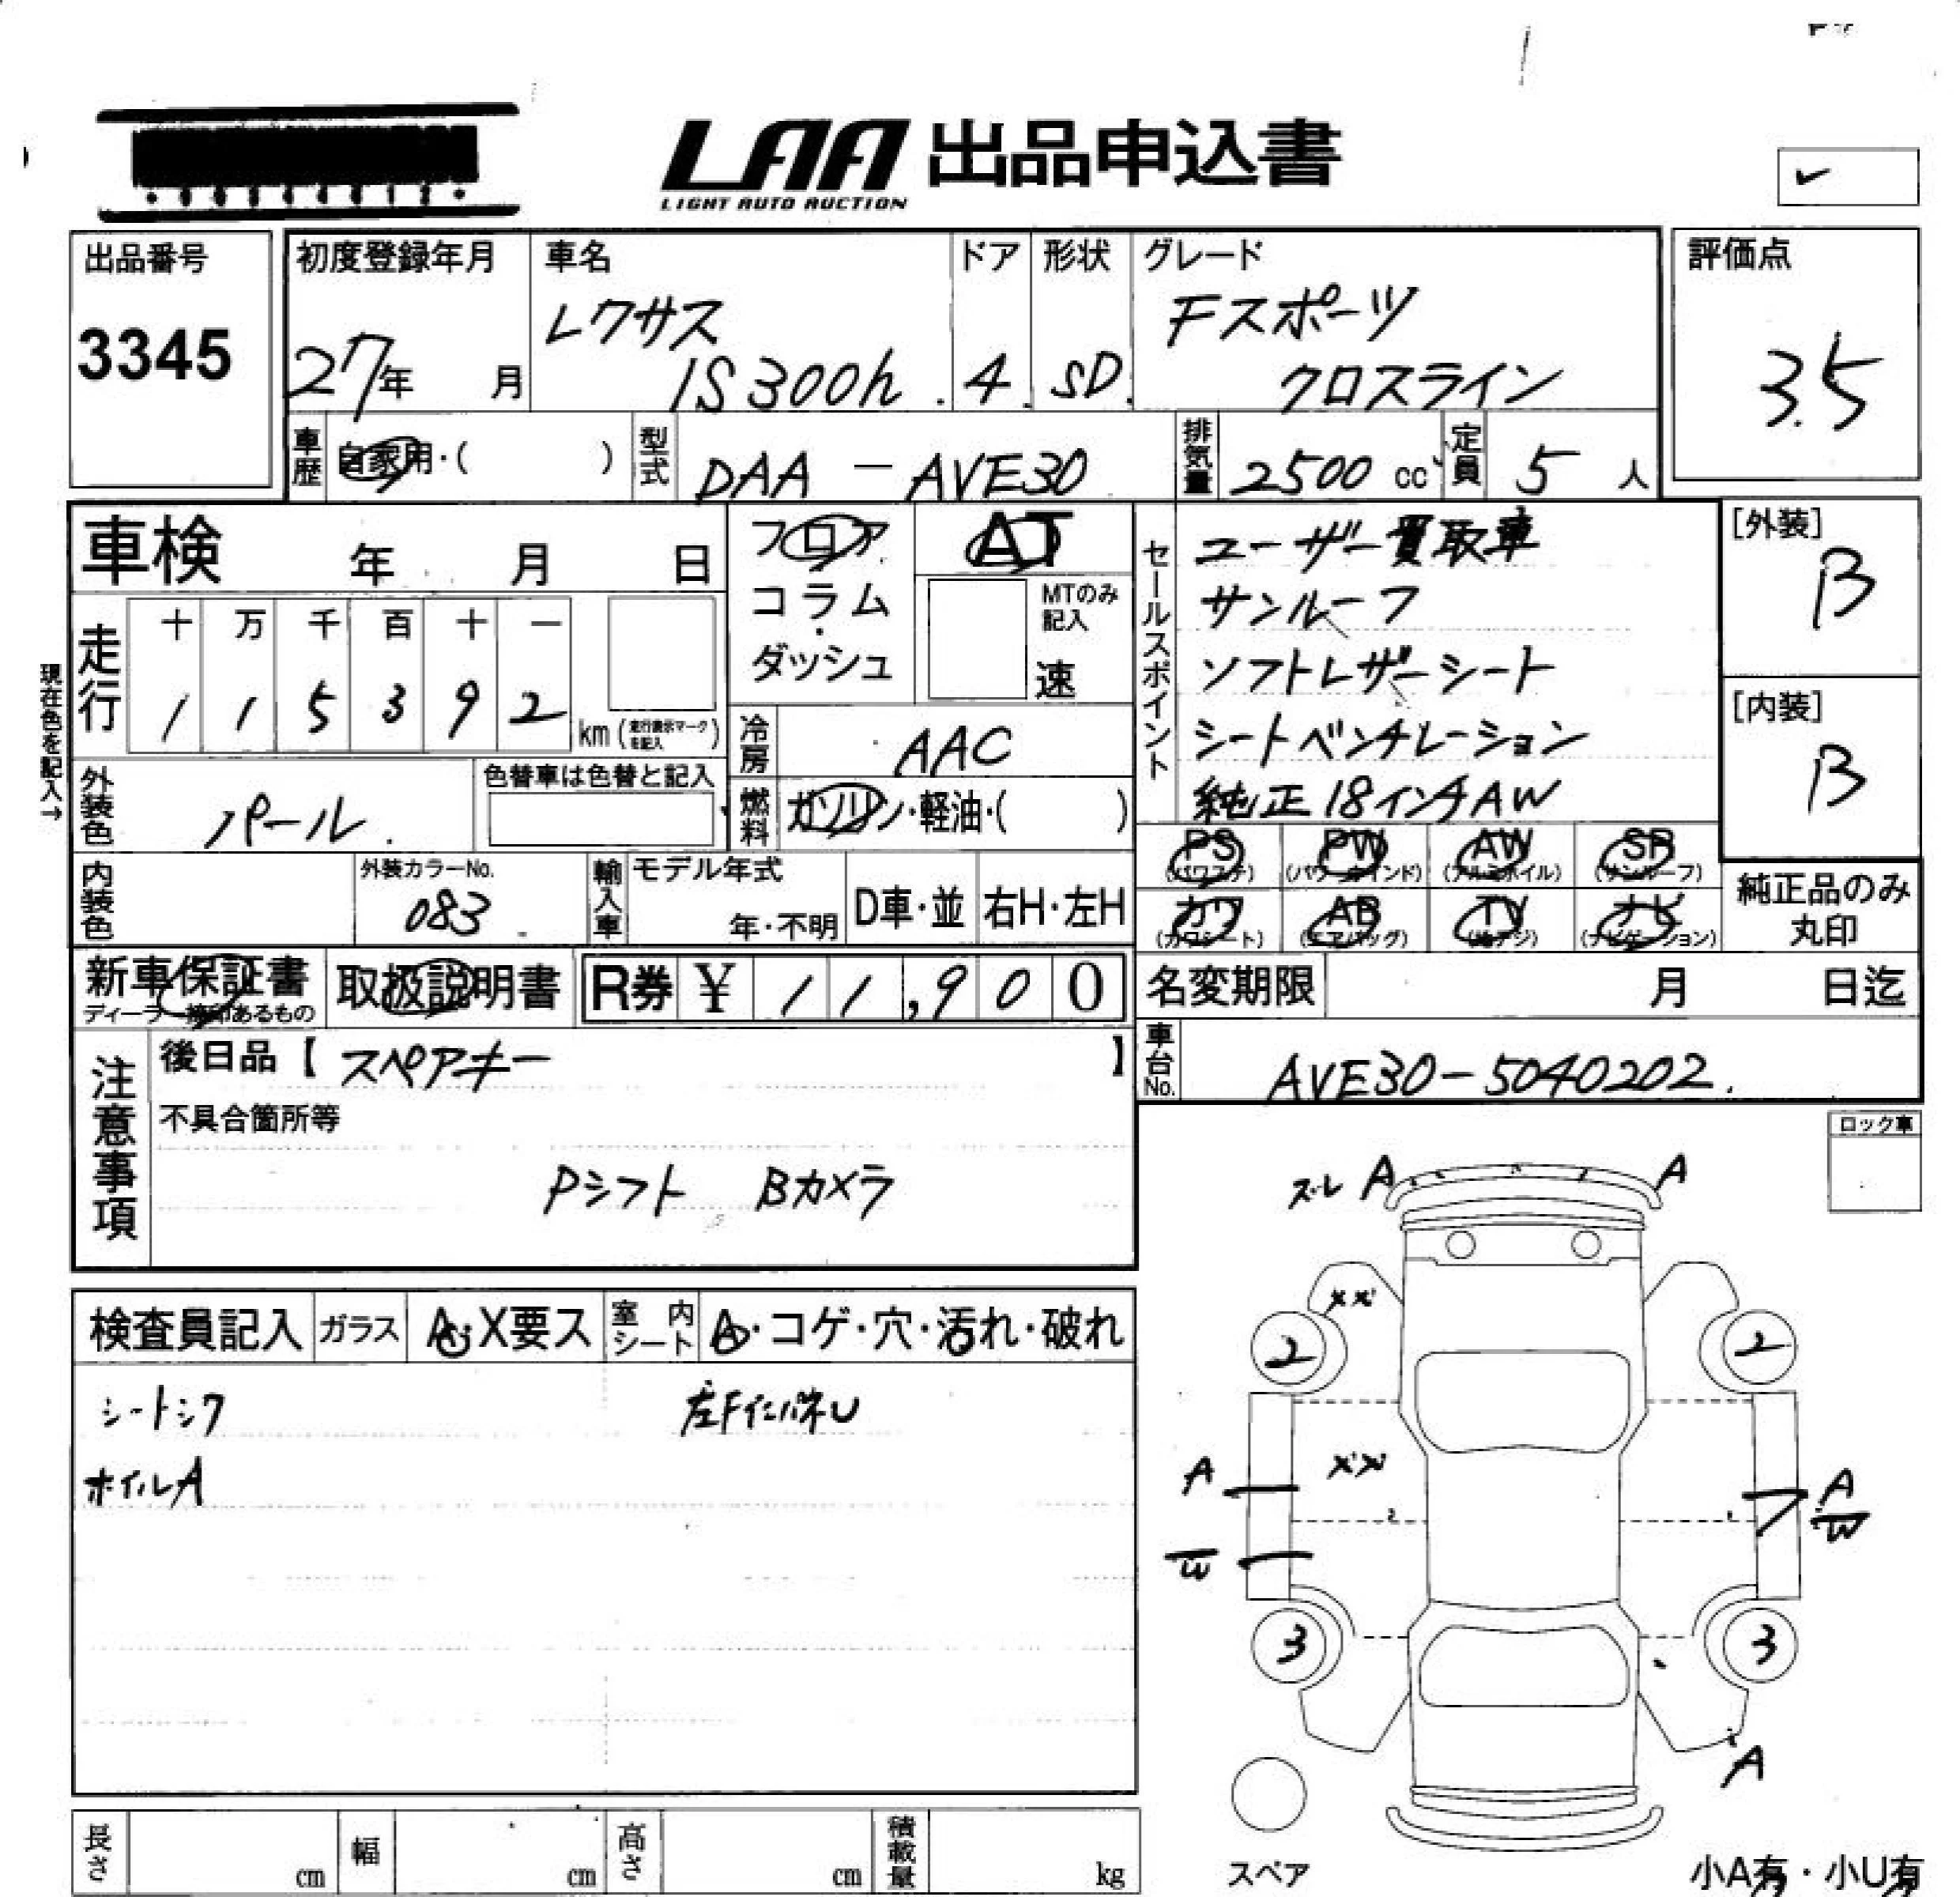 LAA 出品申込書
LIGHT AUTO AUCTION
出品番号
3345
初度登録年月
27年 月
車名
レクサス
IS300h
ドア
4
形状
SD
グレード
Fスポーツ
クロスライン
評価点
3.5
車歴 自家用・( )
型式 DAA-AVE30
排気量 2500 cc
定員 5 人
車検 年 月 日
フロア
コラム
・
ダッシュ
AT
MTのみ
記入
速
セールスポイント
ユーザー買取車
サンルーフ
ソフトレザーシート
シートベンチレーション
純正18インチAW
[外装]
B
[内装]
B
現在色を記入→
走行
十 万 千 百 十 一
1 1 5 3 9 2
km (走行表示マークを記入)
冷房 AAC
燃料 ガソリン・軽油・( )
外装色 パール
色替車は色替と記入
内装色
外装カラーNo.
083
輸入車
モデル年式
年・不明
D車・並
右H・左H
PS (パワステ)
PW (パワーウインド)
AW (アルミホイル)
SR (サンルーフ)
カワ (カワシート)
AB (エアバッグ)
TV (地デジ)
ナビ (ナビゲーション)
純正品のみ
丸印
新車保証書
取扱説明書
R券 ¥ 11,900
名変期限 月 日迄
車台No. AVE30-5040202
注意事項
後日品【 スペアキー 】
不具合箇所等
Pシフト Bカメラ
ロック車
検査員記入
ガラス A・X要ス
室内シート A・コゲ・穴・汚れ・破れ
シートシワ
ホイルA
ズレ A A
XX
2 2
A XX A
W W
3 3
A
スペア
小A有・小U有
長さ cm
幅 cm
高さ cm
積載量 kg